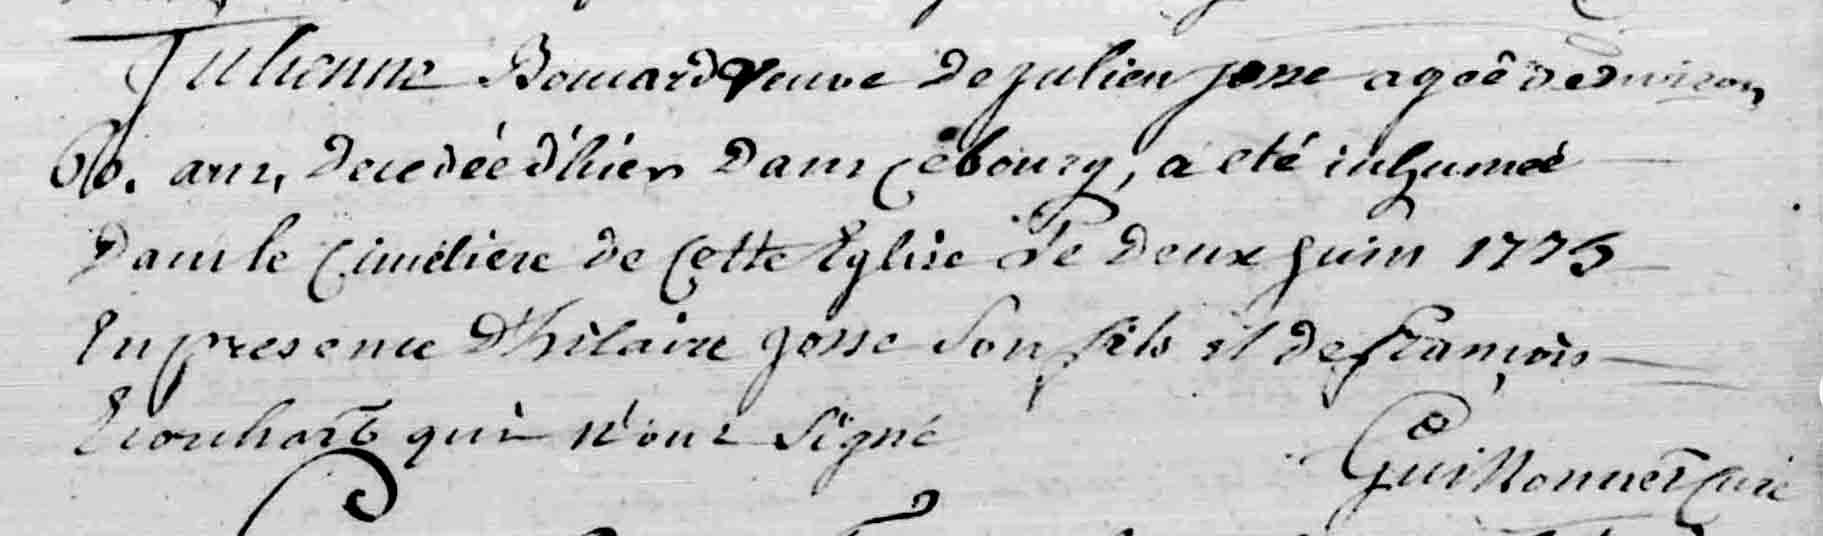 Julienne Bouard veuve de julien josse ageé d'environ
60. ans, decedée d'hier dans ce bourg, a été inhumeé
dans le Cimetiere de Cette Eglise le deux juin 1775
En presence d'hilaire josse son fils et de françois
qui n'ont signé
Guillonnet Curé